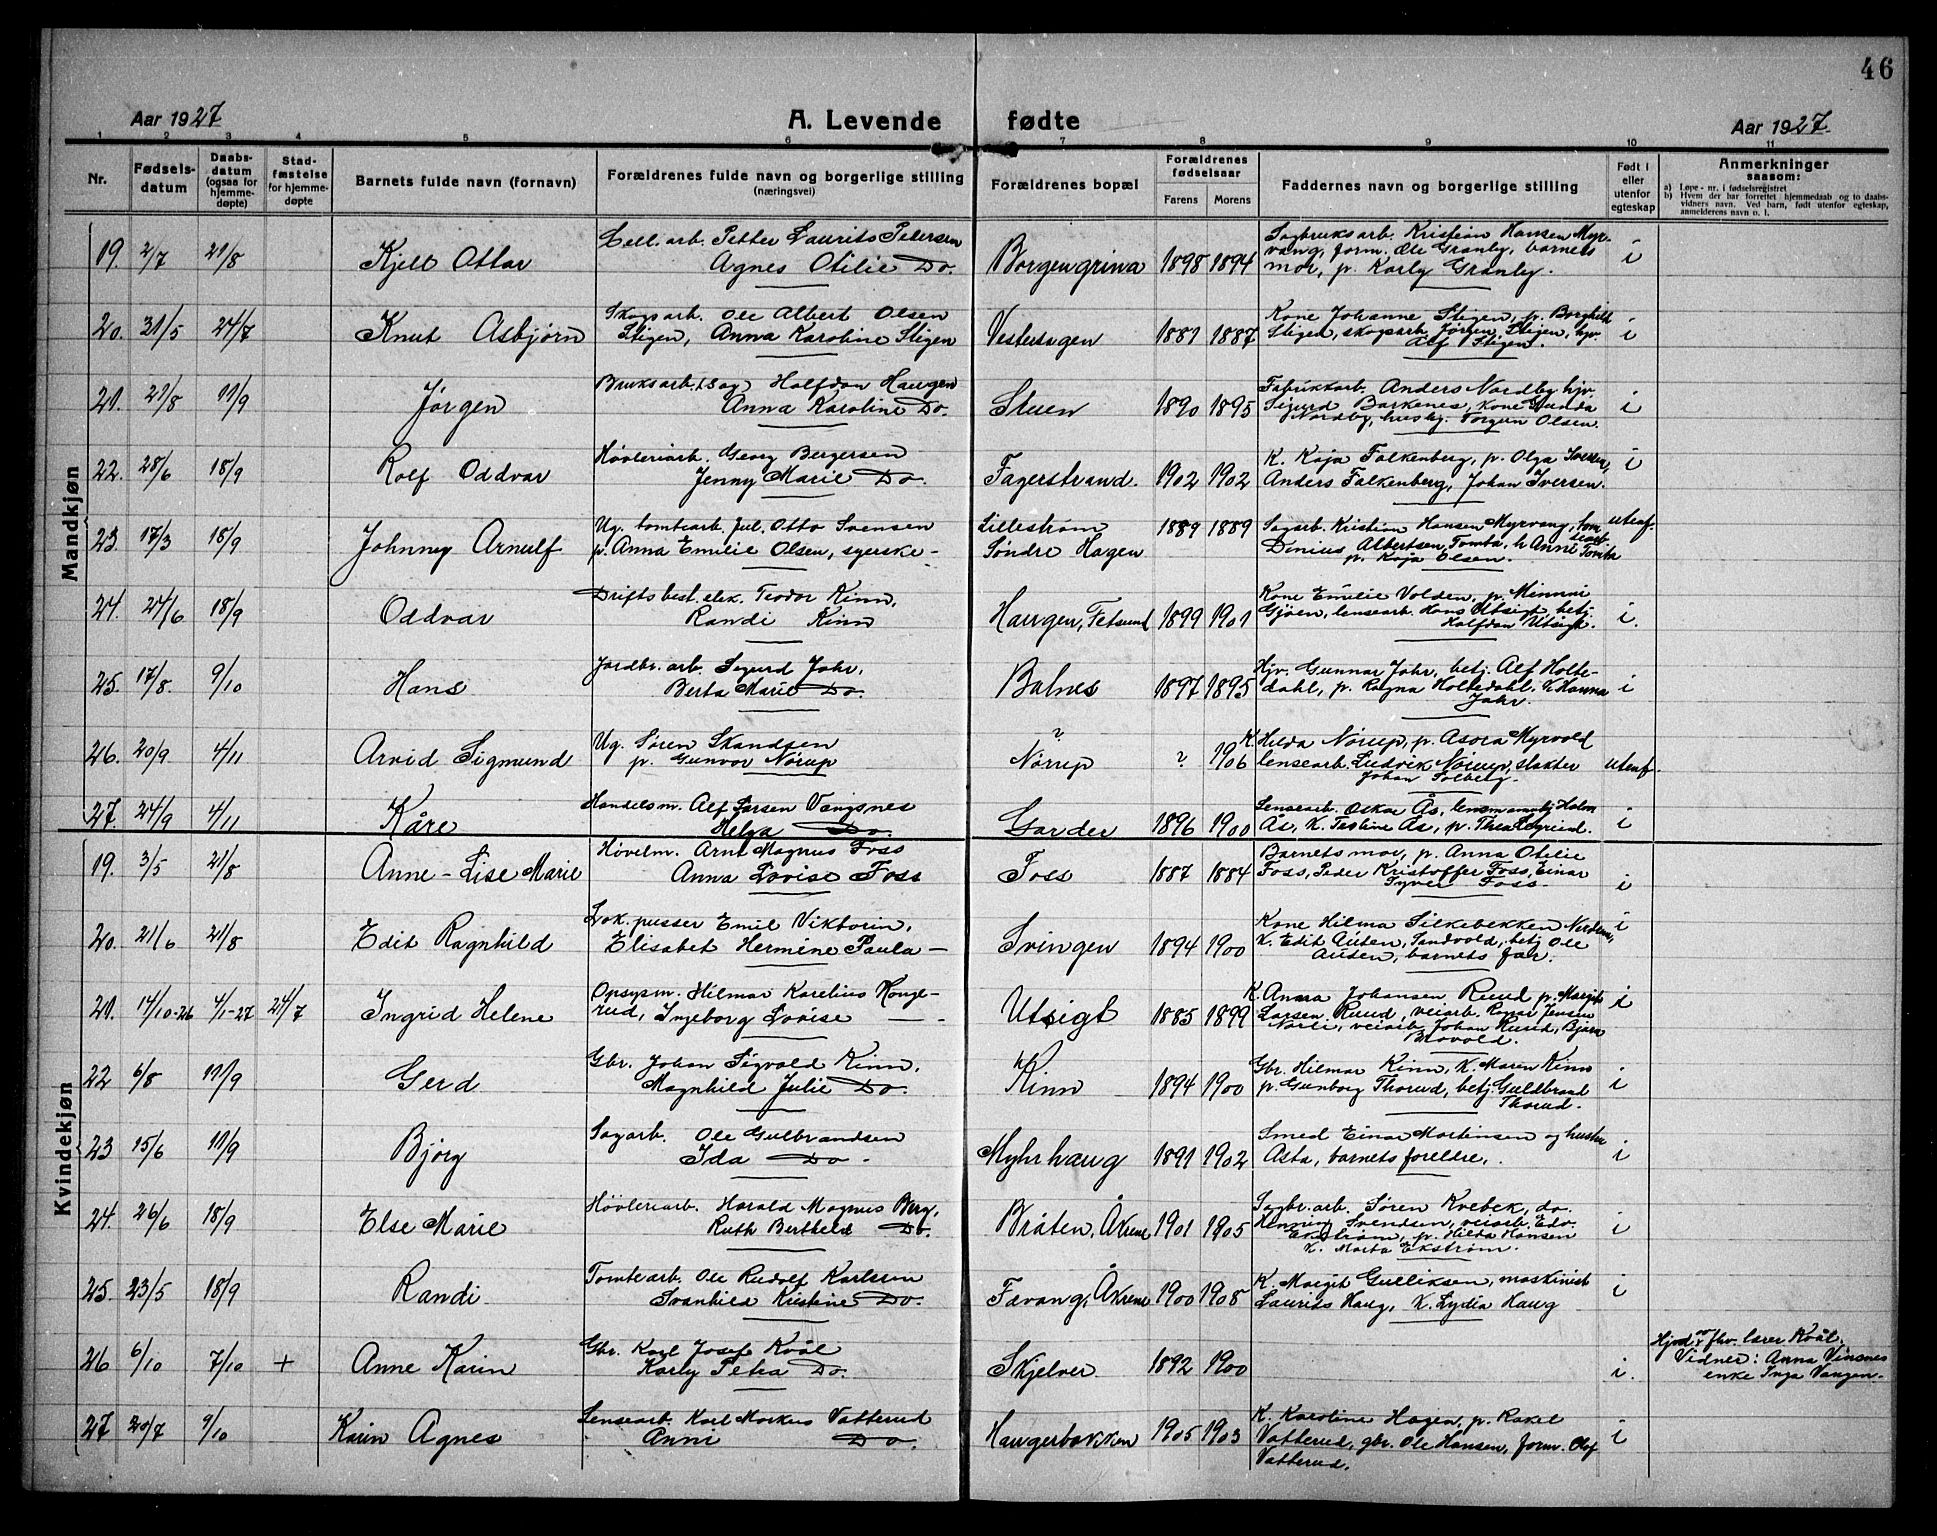 46
Aar 1927 A. Levende fødte Aar 1927
1 2 3 4 5 6 7 8 9 10 11
Nr. Fødselsdatum Daabsdatum (ogsaa for hjemmedøpte) Stadfæstelse for hjemmedøpte Barnets fulde navn (fornavn) Forældrenes fulde navn og borgerlige stilling (næringsvei) Forældrenes bopæl Forældrenes fødselsaar Farens Morens Faddernes navn og borgerlige stilling Født i eller utenfor egteskap Anmerkninger saasom:
a) Løpe-nr. i fødselsregistret
b) Hvem der har forrettet hjemmedaab og to daabsvidners navn. Ved barn, født utenfor egteskap, anmelderens navn o. l.
Mandkjøn
19. 2/7 21/8 Kjell Ottar Cell. arb. Petter Laurits Petersen
Agnes Otilie Do. Borgengrina 1898 1894 Sagbruksarb. Kristian Hansen Myrvang, form. Ole Granly, barnets
mor, p. Karly Granly. i
20. 31/5 24/7 Knut Asbjørn Skogsarb. Ole Albert Olsen
Stigen, Anna Karoline Stigen Vestersagen 1881 1887 Kone Johanne Stigen, p. Borghild
Stigen, skogsarb. Jørgen Stigen, hjv.
Alf Stigen. i
21. 21/8 11/9 Jørgen Bruksarb. (Sag) Halfdan Haugen
Anna Karoline Do. Stuen 1890 1895 Fabrikkarb. Anders Nordby hjv.
Sigurd Barkenes, kone Gunda
Nordby, husby. Torgun Olsen. i
22. 28/6 18/9 Rolf Oddvar Høvleriarb. Georg Bergersen
Jenny Marie Do. Fagerstrand. 1902 1902 K. Kaja Falkenberg, p. Olga Iversen,
Anders Falkenberg, Johan Iversen. i
23. 17/3 18/9 Johnny Arnulf Ug. tomtearb. Jul. Otto Svensen
p. Anna Emilie Olsen, syerske - Lillestrøm
Søndre Hagen 1889 1889 Sagarb. Kristian Hansen Myrvang, tomtearb.
Dinius Albertsen Tomta, h. Anne Tomta
p. Kaja Olsen. utenf.
24. 24/6 18/9 Oddvar Driftsbest. elek. Teodor Kinn,
Randi Kinn Haugen, Fetsund 1899 1901 Kone Emilie Volden, p. Minmi
Gjøen, lensearb. Hans Utsigt, betj.
Halfdan Utsigt. i.
25. 17/8. 9/10 Hans Jordbr. arb. Sigurd Jahr,
Berta Marie Do. Balnes 1897 1895 Hjv. Gunnar Jahr, betj. Alf Holtedahl, p. Ragna Holtedahl. k. Hanna
Jahr. i
26. 20/9. 4/11 Arvid Sigmund Ug. Søren Skandsen
p. Gunvor Nørup ?
Nørup ? 1906 K. Hilda Nørup, p. Asora Myrvold
lensearb. Ludvik Nørup, slakter
Johan Folberg. utenf.
27. 24/9 4/11 Kåre Handelsm. Alf Larsen Vangsnes
Helga Do. Garder 1896 1900 Lensearb. Oskar Ås, Holm
Ås, K. Ås, p. Thea i
Kvindekjøn
19. 3/5 21/8 Anne-Lise Marie Høvelm. Arne Magnus Foss
Anna Lovise Foss Foss 1887 1884 Barnets mor, p. Anna Otilie
Foss, Peder Kristoffer Foss, Einar
Syver Foss. i
20. 21/6 21/8 Edit Ragnhild Lok. pusser Emil Viktorin,
Elisabet Hermine Paula — Svingen 1894 1900 Kone Hilma Silkebekken
K. Edit Auten, Sandvold, betj. Ole
Auten, barnets far. i
21. 14/10-26 4/1-27 24/7 Ingrid Helene Opsysm. Hilmar Karelius Kongerud, Ingeborg Lovise — Utsigt 1885 1899 K. Anna Johansen Ruud p. Margit
Larsen Ruud, veiarb. Ragnar Jensen
Norli, veiarb. Johan Ruud, Bjarn
Brovold. i
22 6/8 11/9 Gerd Gbr. Johan Sigvald Kinn,
Magnhild Julie Do. Kinn 1894 1900 Gbr. Hilmar Kinn, K. Maren Kinn
p. Gunborg Thorud, betj. Guldbrand
Thorud. i
23 15/6 11/9 Bjørg Sagarb. Ole Gulbrandsen
Ida Do. Myhrhaug 1891 1902 Smed Einar Martinsen og hustru
Asta, barnets forellre. i
24. 26/6 18/9 Else Marie Høvleriarb. Harald Magnus Berg,
Ruth Berthela Do. Bråten, Åkrene 1901 1905 Sagbr. arb. Søren Kvebek, do.
Henning Svendsen, veiarb. Edv.
Ekstrøm, p. Hilda Hansen
K. Marta Ekstrøm. i
25. 23/5 18/9 Randi Tomtearb. Ole Rudolf Karlsen
Svanhild Kristine Do. Favang, Åkrene 1900 1908 K. Margit Gulliksen, maskinist
Laurits Haug, K. Lydia Haug i
26 6/10 7/10 + Anne Karin Gbr. Karl Josef Kvål
Karly Petra Do. Skjelver 1892 1900 i. Hjmd. av fhv. lærer Kvål.
Vidner: Anna Vinsnes
enke Inga Vangen.
27 20/7 9/10 Karin Agnes Lensearb. Karl Markus Vatterud
Anni Do. Haugerbakken 1905 1903 K. Karoline Hagen, p. Rakel
Vatterud, gbr. Ole Hansen, form. Olaf
Vatterud. i